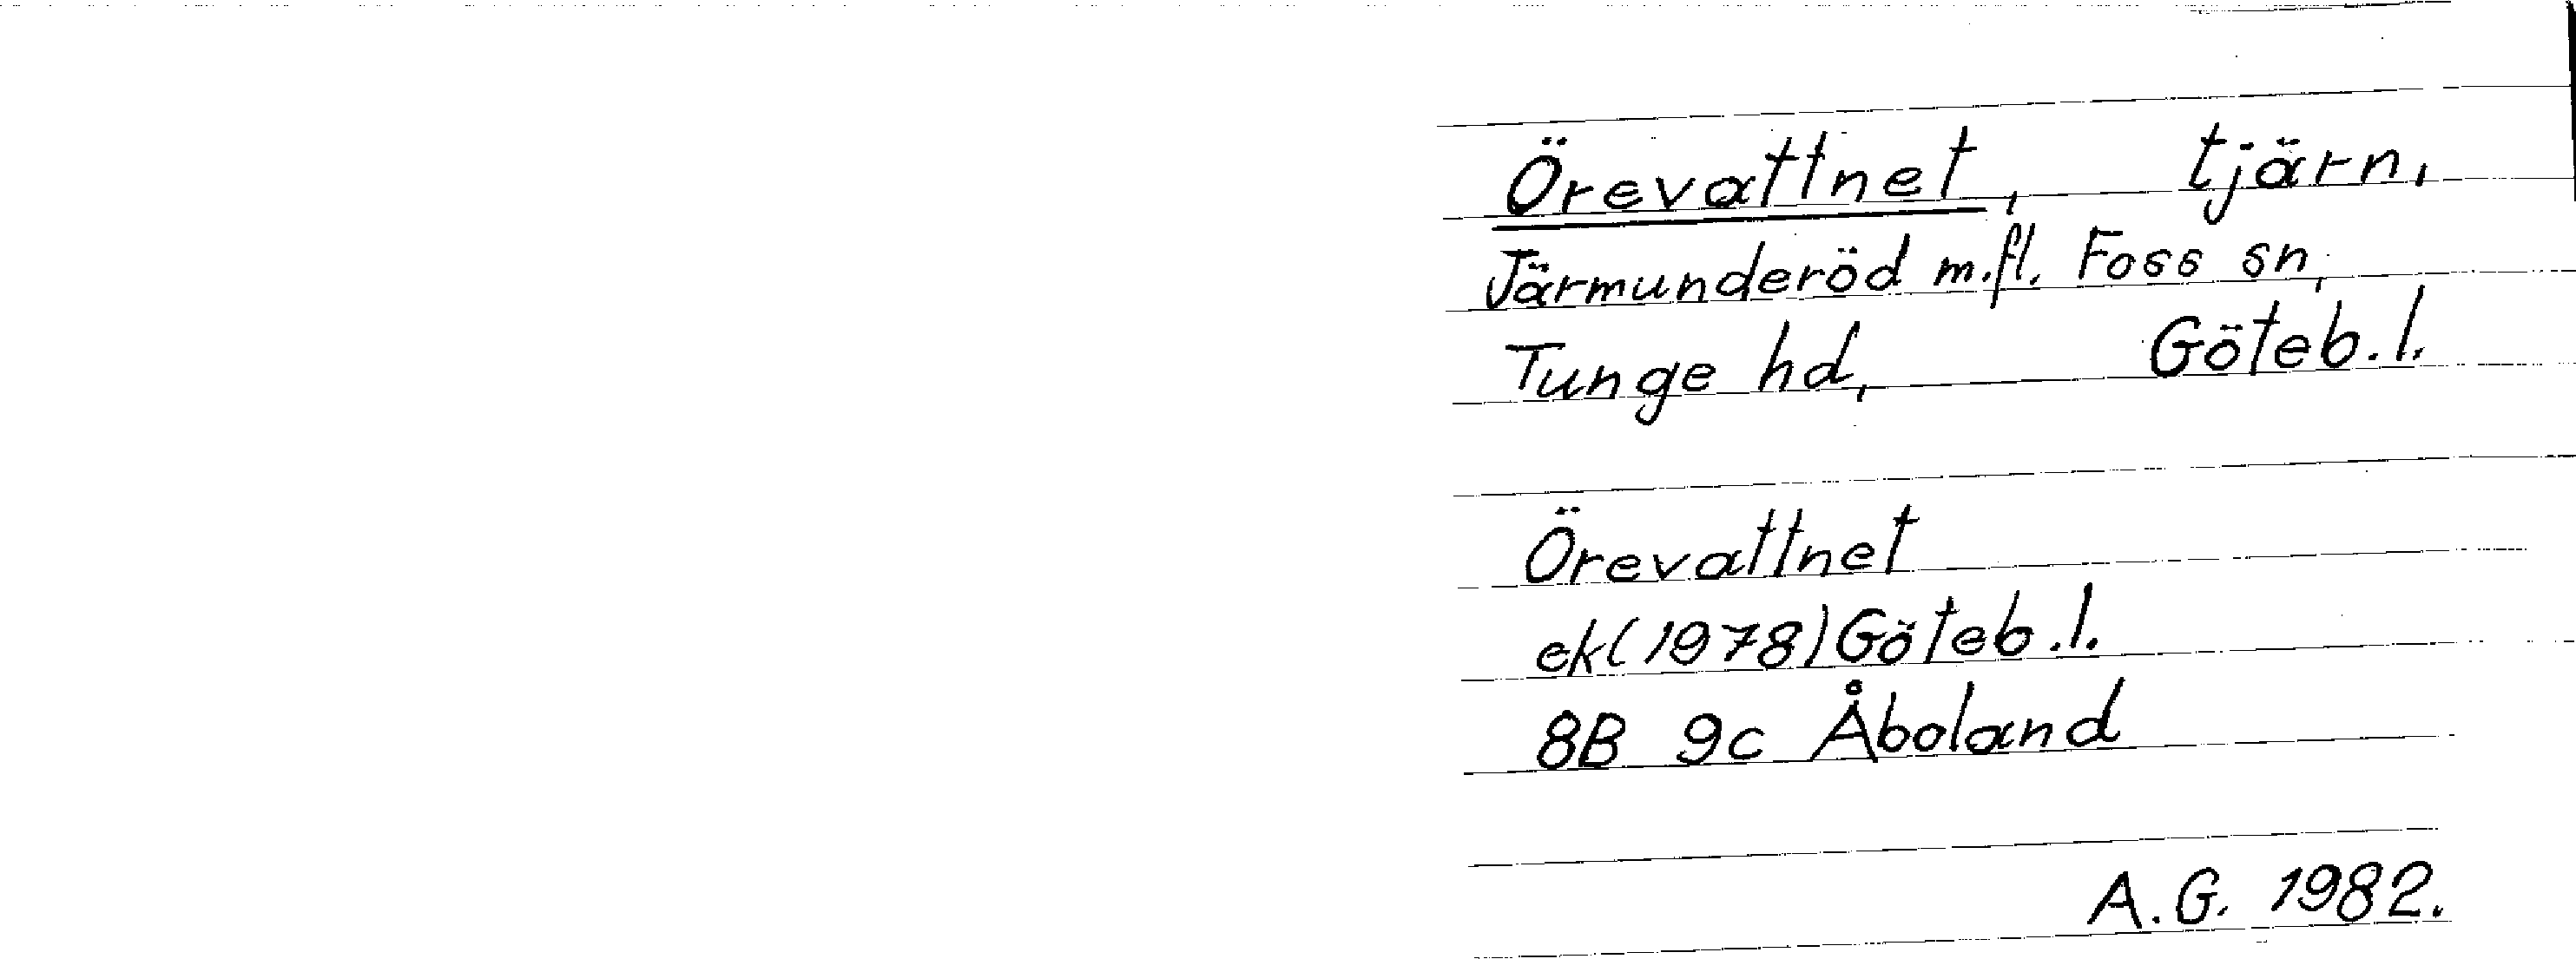 Örevattnet, tjärn,
Järmunderöd m.fl. Foss sn,
Tunge hd, Göteb.l.
Örevattnet
ek(1978)Göteb.l.
8B 9c Åboland
A.G. 1982.